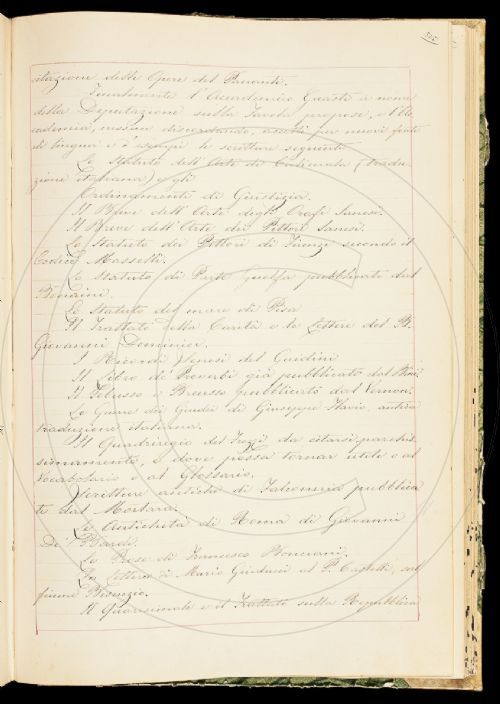 stazione delle Opere del Buranti.
Finalmente l'Accademico Guasti a nome
della Deputazione sulla Tavola propose, e l'Ac
cademia, nessun discordando, accettò per nuovi fonti
di lingua e d'esempi le scritture seguenti
Lo Statuto dell'Arte di Calimala (tradu-
zione italiana) e gli
Ordinamenti di Giustizia.
Il Breve dell'Arte degli Orafi Senesi.
Il Breve dell'Arte dei Pittori Sanesi.
Lo Statuto dei Pittori di Firenze secondo il
Codice Masselli.
Lo Statuto di Parte Guelfa pubblicato dal
Bonaini.
Lo Statuto del mare di Pisa
Il Trattato della Carità e le Lettere del B.
Giovanni Dominici.
I Ricordi Senesi del Guidini
Il Libro di Proverbi già pubblicato dal Bini.
Il Febusso e Breusso pubblicato dal
Le Guerre dei Giudei di Giuseppe Flavio, antica
traduzione italiana.
Il Quadriregio del Frezzi da citarsi parchis
simamente, e dove possa tornar utile o al
Vocabolario o al Glossario.
Scritture antiche di Falconeria pubblica
te dal Mortara.
Le Antichità di Roma di Giovanni
De' Bardi.
Le Prose di Francesco Bonciani.
La Lettera di Mario Guiducci al P. Castelli, sul
fiume Bisenzio.
Il Quaresimale e il Trattato sulla Repubblica